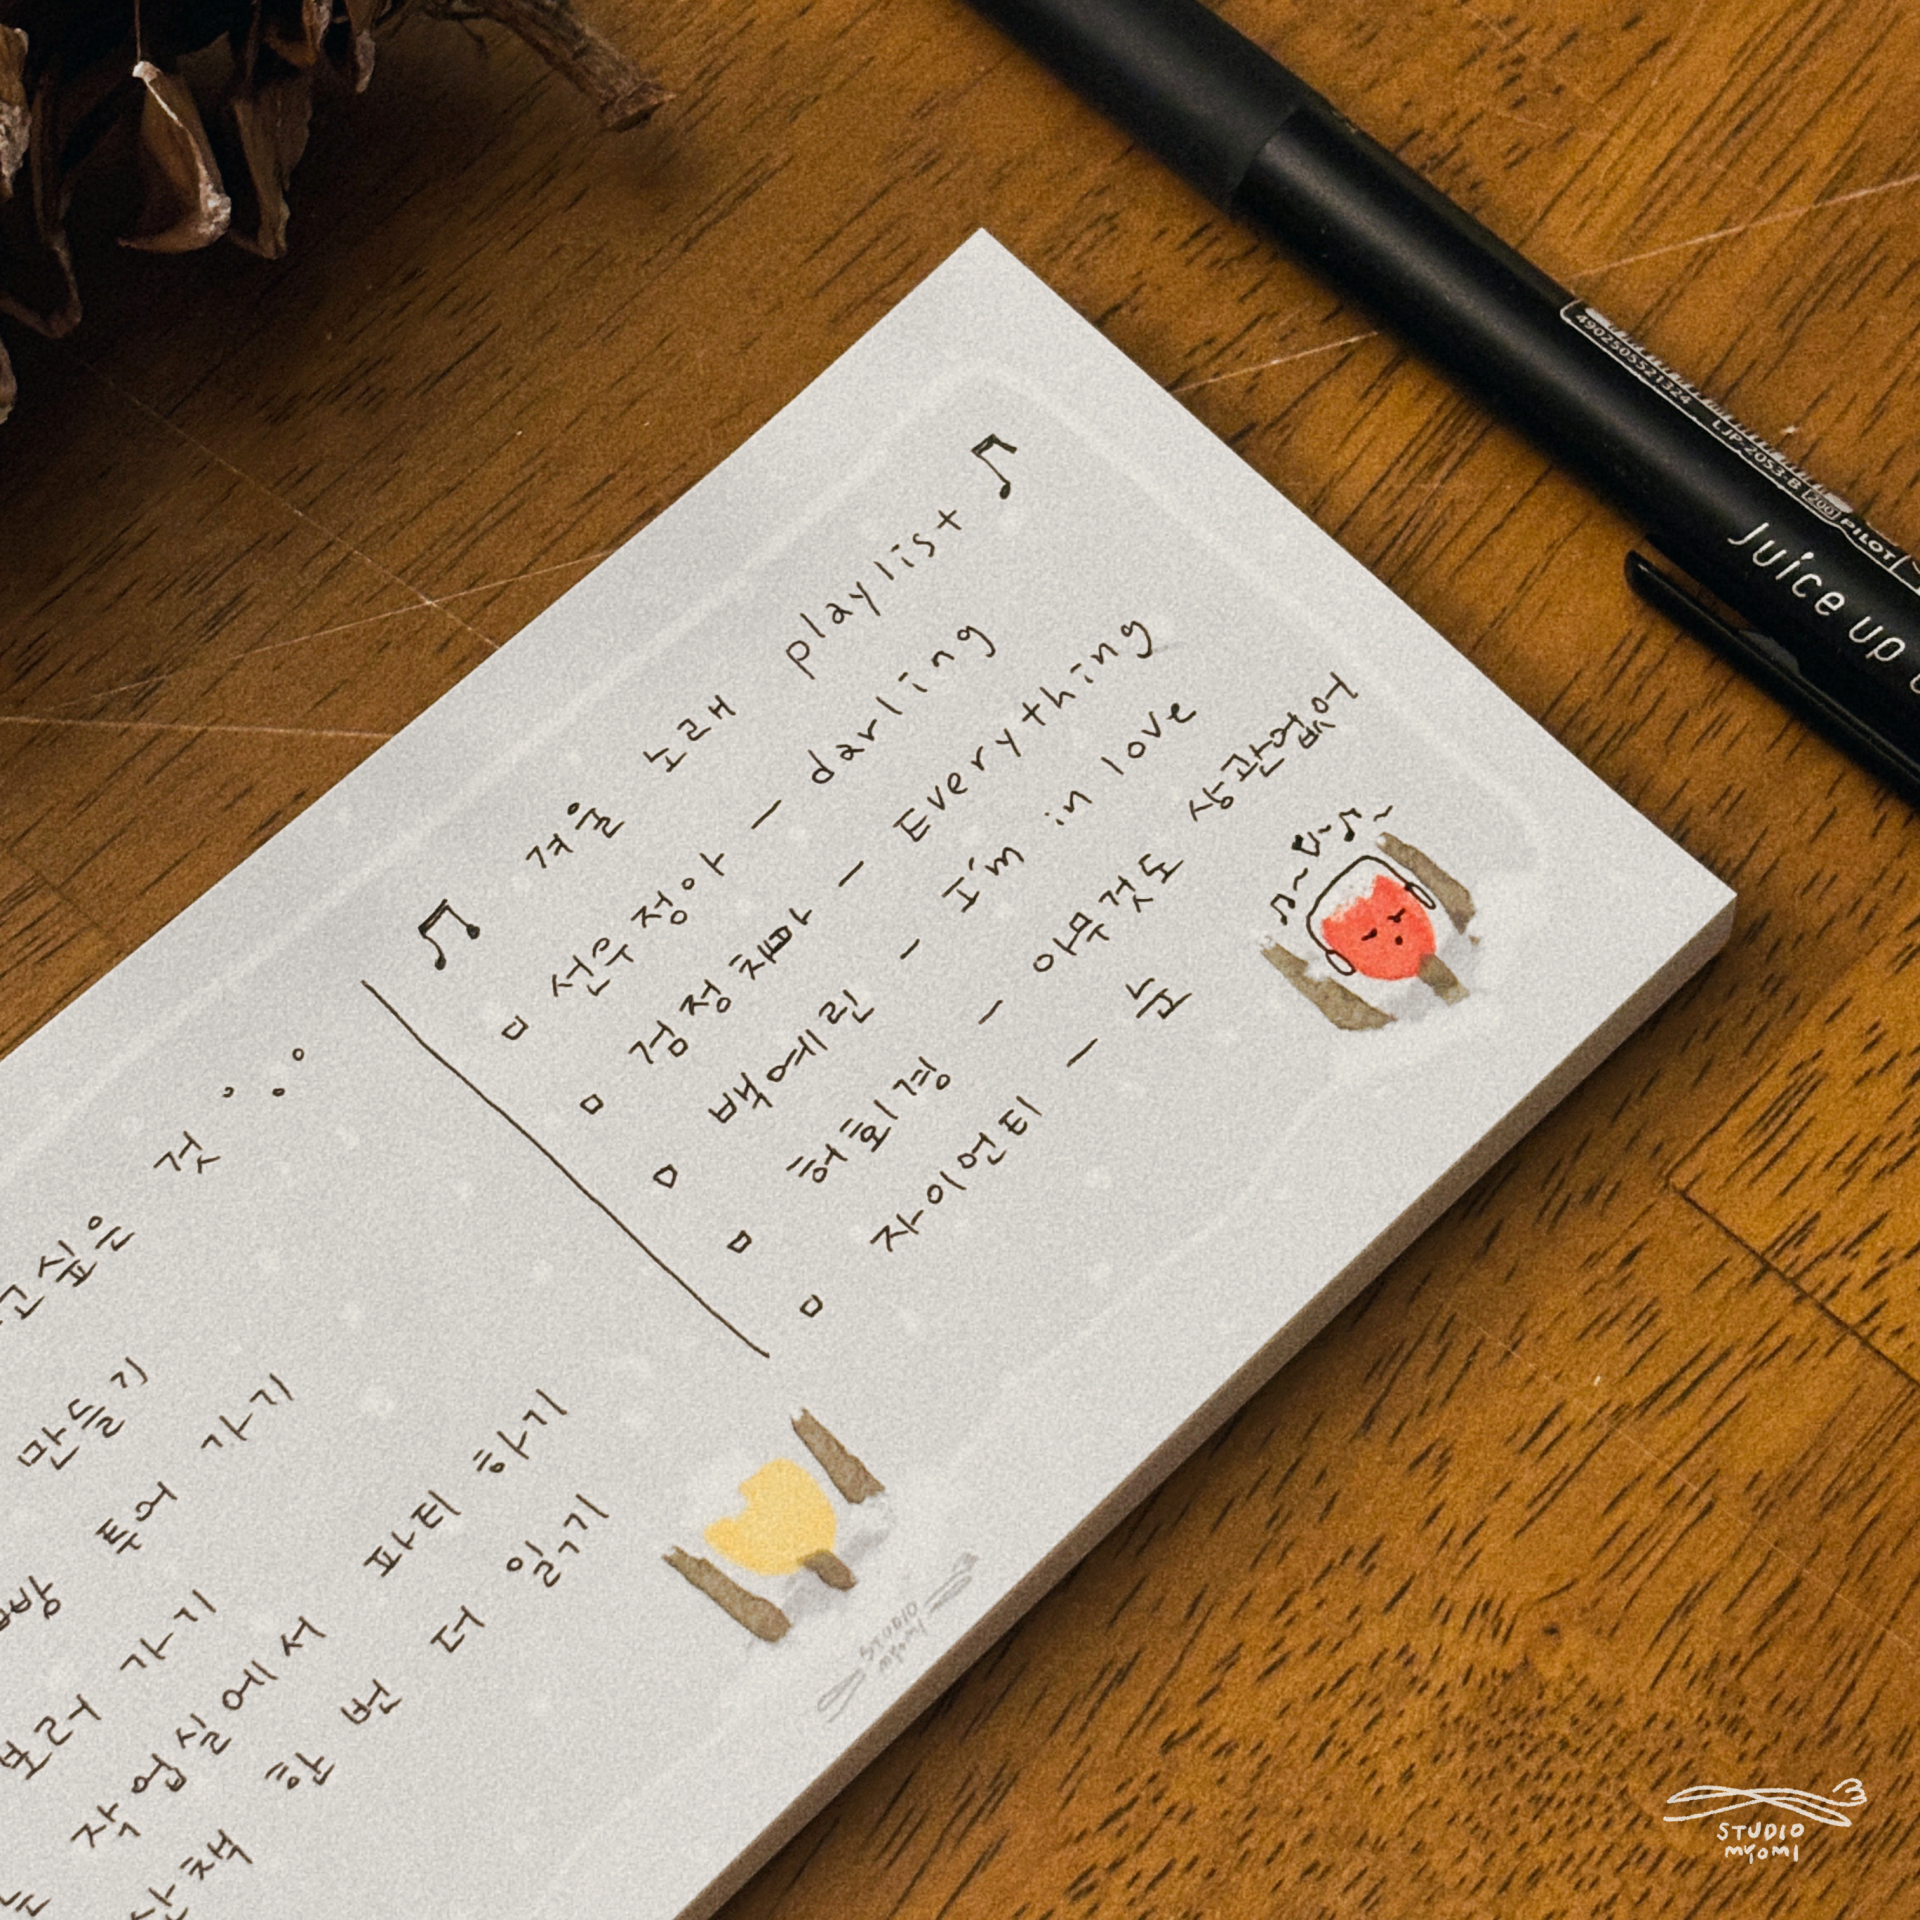 ♫ 겨울 노래 playlist ♫
▫ 선우정아 – darling
▫ 검정치마 – Everything
▫ 백예린 – I'm in love
▫ 허회경 – 아무것도 상관없어
▫ 자이언티 – 눈
고싶은 것
만들기
투어 가기
보러 가기
작업실에서 파티 하기
한 번 더 읽기
STUDIO
myomi
4902505521324 LJP-20S3-B [200] PILOT
Juice up
STUDIO
myomi